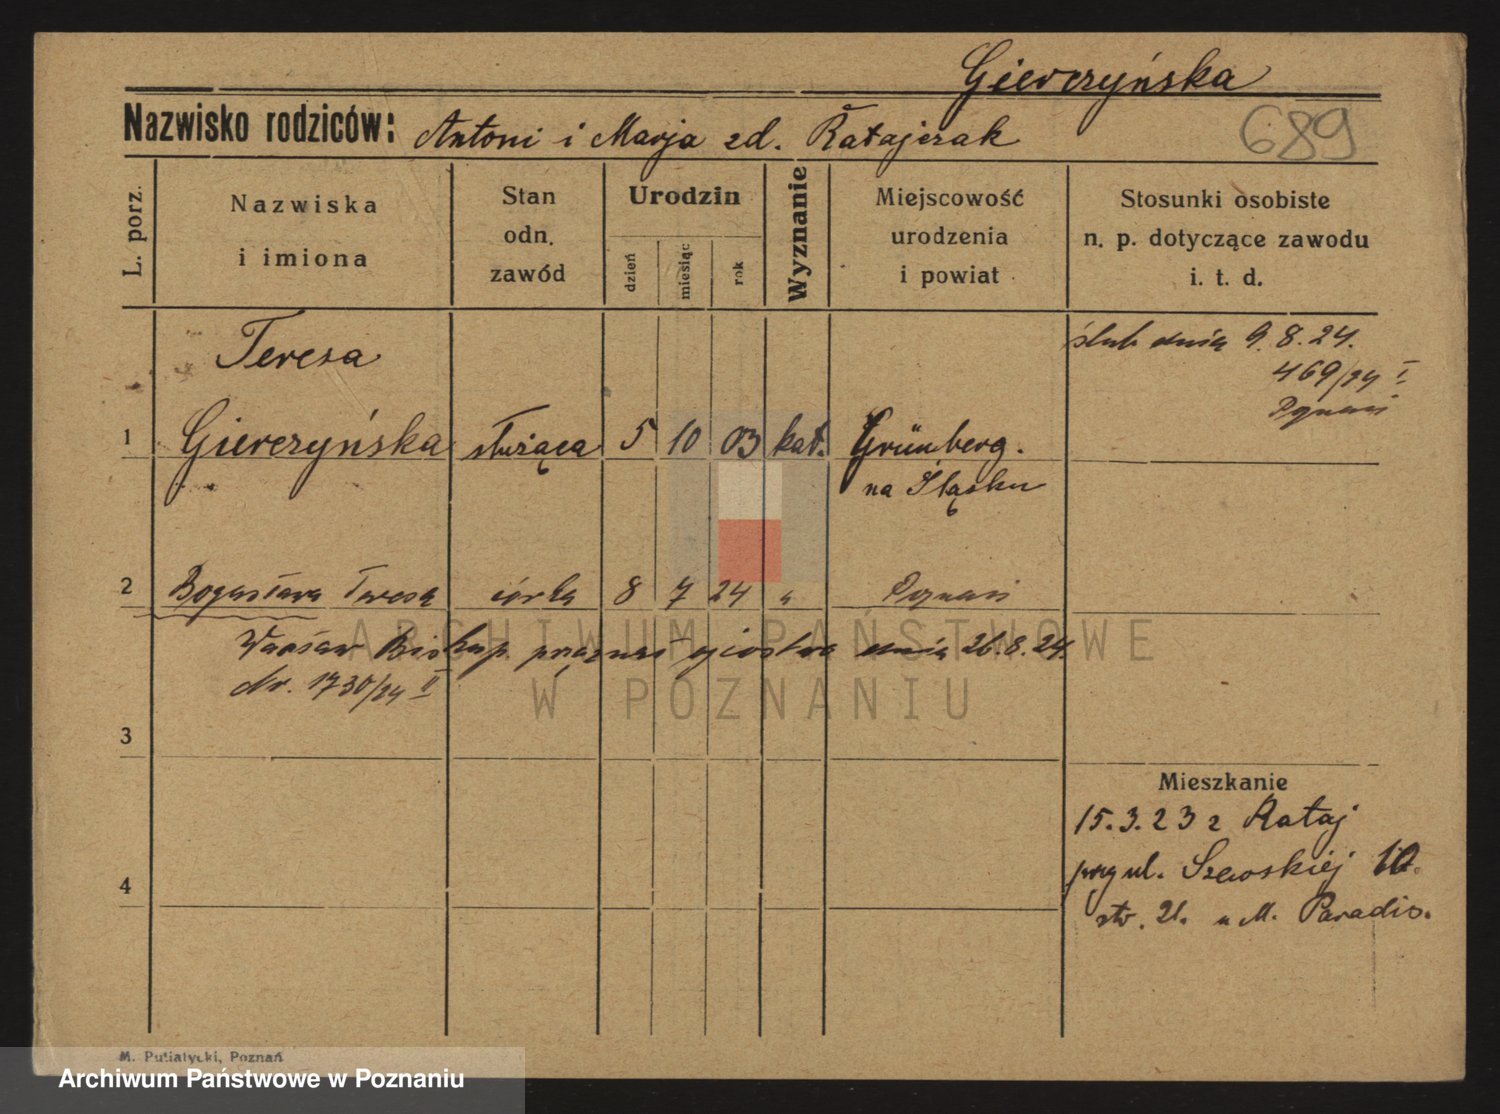 Gierczyńska
Nazwisko rodziców: Antoni i Marja zd. Ratajczak
689
L. porz.
Nazwiska
i imiona
Stan
odn.
zawód
Urodzin
dzień
miesiąc
rok
Wyznanie
Miejscowość
urodzenia
i powiat
Stosunki osobiste
n. p. dotyczące zawodu
i. t. d.
ślub dnia 9.8.24.
469/24 I
Poznań
Teresa
1 Gierczyńska służąca 5 10 03 kat. Grünberg.
na Śląsku
2 Bogusława Teresa córka 8 7 24 " Poznań
Wacław Biskup przyznał ojcostwo dnia 26.8.24.
Nr. 1730/24 II
3
4
Mieszkanie
15.3.23 z Rataj
przy ul. Szewskiej 10.
str. 21. u M. Paradis.
M. Putiatycki, Poznań
ARCHIWUM PAŃSTWOWE
W POZNANIU
Archiwum Państwowe w Poznaniu